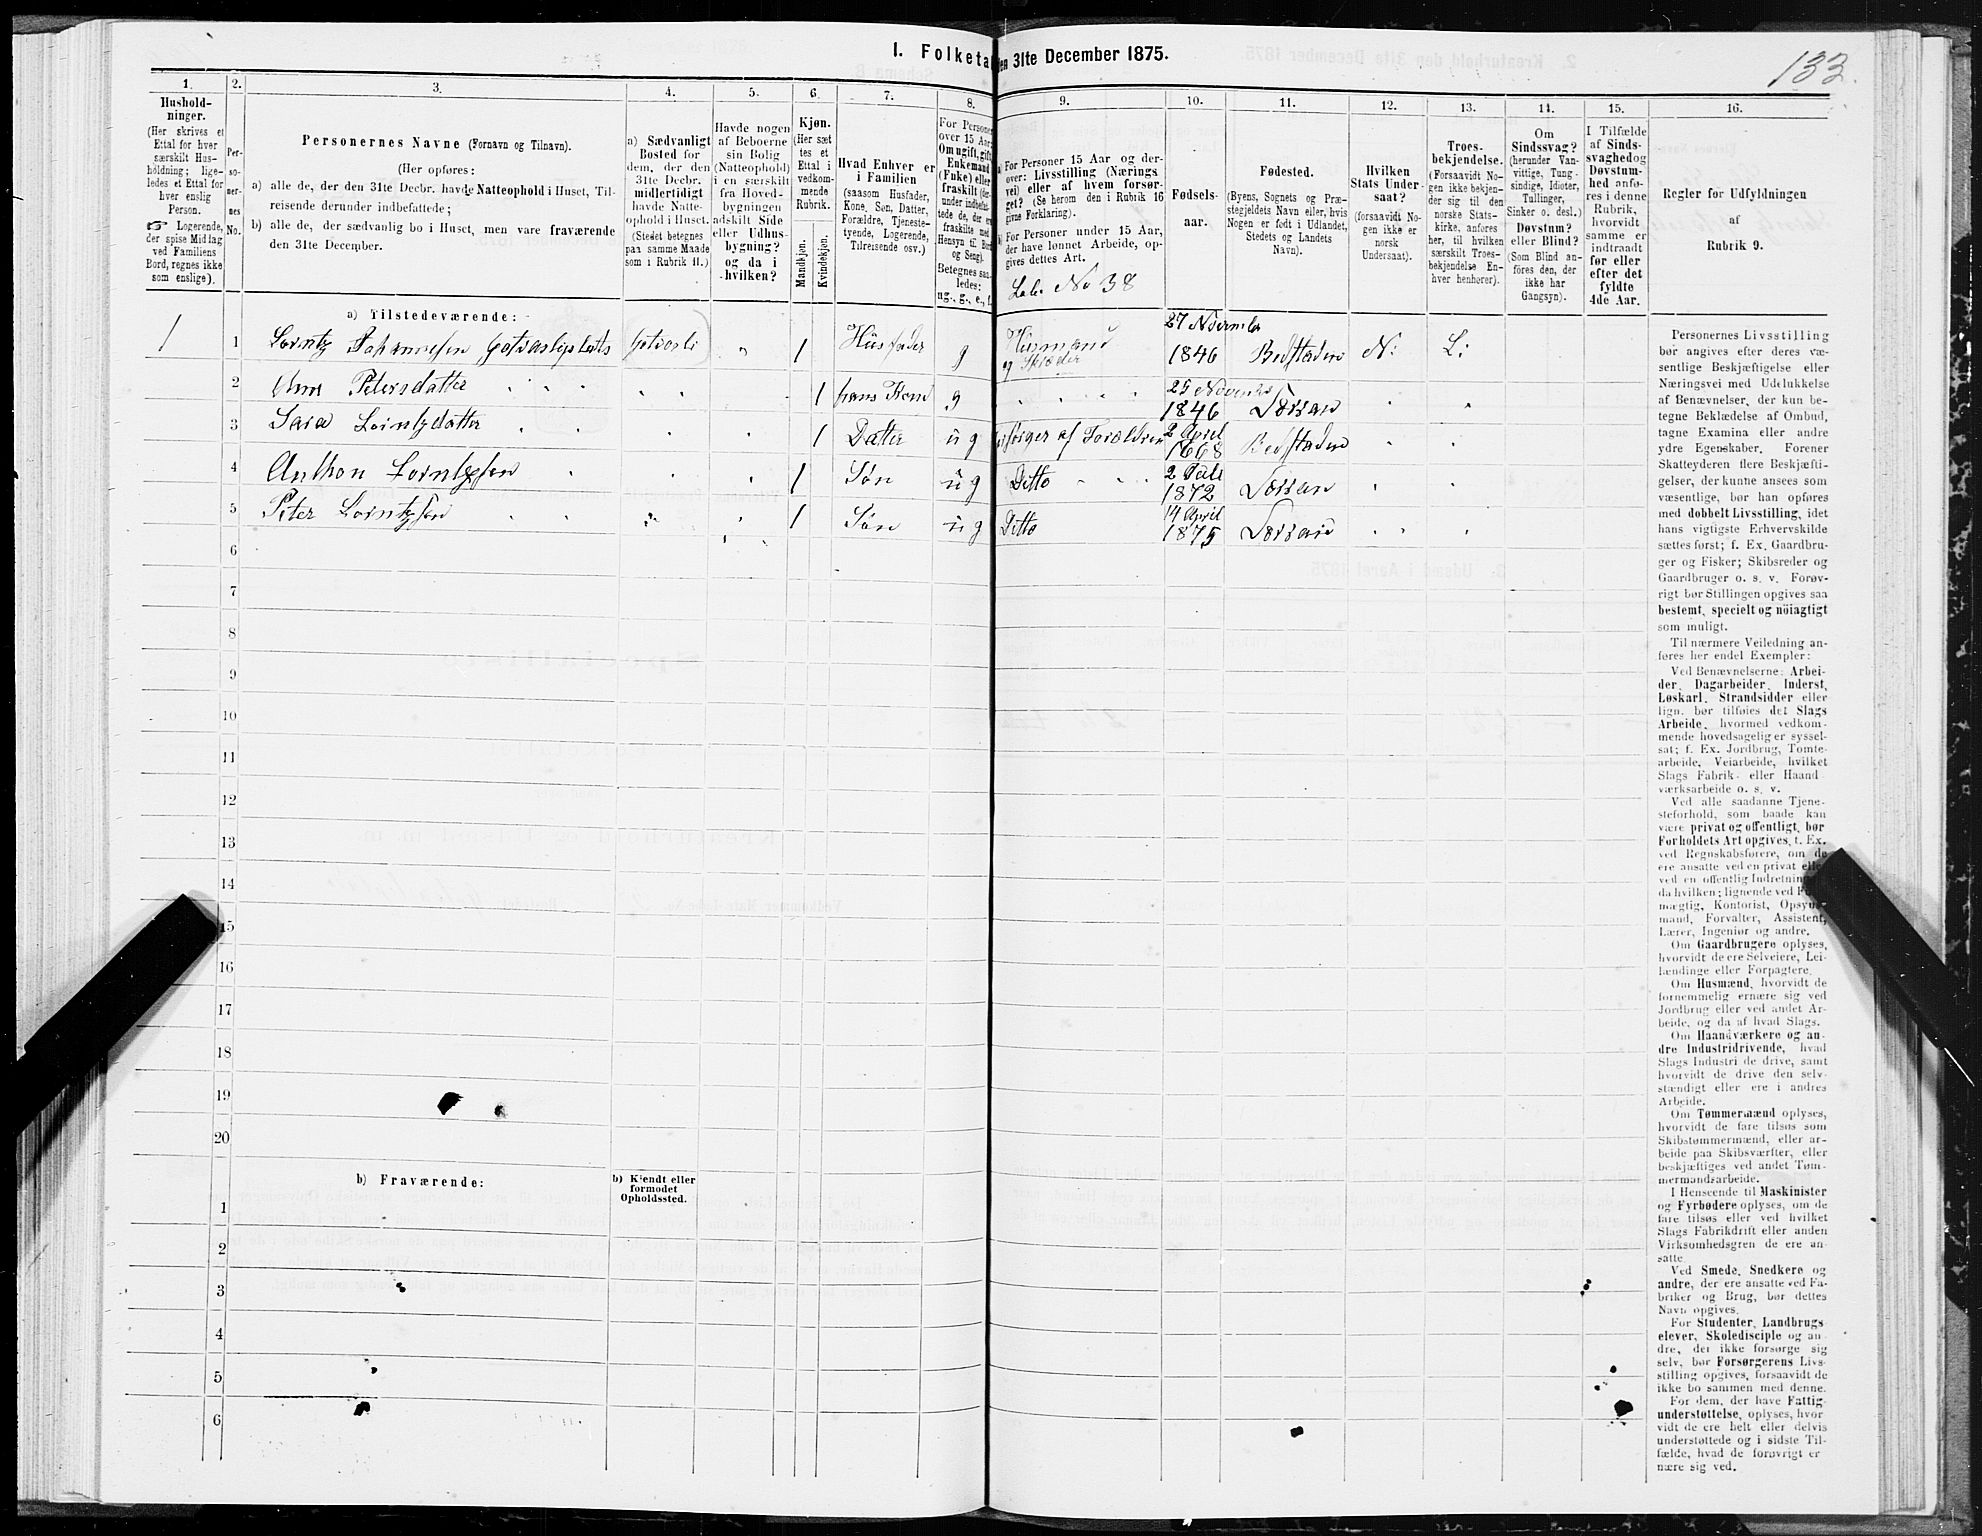 1. Folketa
den 31te December 1875.
133.
1.
2.
3.
4.
5.
6.
7.
8.
9.
10.
11.
12.
13.
14.
15.
16.
Hushold-
ninger.
(Her skrives et
Ettal for hver
særskilt Hus-
holdning; lige-
ledes et Ettal for
hver enslig
Person.
☞ Logerende,
der spise Middag
ved Familiens
Bord, regnes ikke
som enslige).
Per-
so-
ner-
nes
No.
Personernes Navne (Fornavn og Tilnavn).
(Her opføres:
a) alle de, der den 31te Decbr. havde Natteophold i Huset, Til-
reisende derunder indbefattede;
b) alle de, der sædvanlig bo i Huset, men vare fraværende
den 31te December.
a) Sædvanligt
Bosted for
dem, der den
31te Decbr.
midlertidigt
havde Natte-
ophold i Huset.
(Stedet betegnes
paa samme Maade
som i Rubrik 11.)
Havde nogen
af Beboerne
sin Bolig
(Natteophold)
i en særskilt
fra Hoved-
bygningen
adskilt Side
eller Udhus-
bygning?
og da i
hvilken?
Kjøn.
(Her sæt-
tes et
Ettal i
vedkom-
mende
Rubrik.
Mandkjøn.
Kvindekjøn.
Hvad Enhver er
i Familien
(saasom Husfader,
Kone, Søn, Datter,
Forældre, Tjeneste-
tyende, Logerende,
Tilreisende osv.)
For Personer
over 15 Aar:
Om ugift, gift,
Enkemand
(Enke) eller
fraskilt
Betegnes saa-
ledes:
ug., g., e., f.
For Personer 15 Aar og der-
over: Livsstilling (Nærings
vei) eller af hvem forsør-
get? (Se herom den i Rubrik 16
givne Forklaring).
For Personer under 15 Aar,
der have lønnet Arbeide, op-
gives dettes Art.
No 38
Fødsels-
aar.
Fødested.
(Byens, Sognets og Præ-
stegjeldets Navn eller, hvis
Nogen er født i Udlandet,
Stedets og Landets
Navn).
Hvilken
Stats Under-
saat?
(forsaavidt No-
gen ikke er
norsk
Undersaat).
Troes-
bekjendelse.
(Forsaavidt No-
gen ikke bekjen-
der sig til den
norske Stats-
kirke, anføres
her, til hvilken
særskilt Troes-
bekjendelse En-
hver henhører).
Om
Sindssvag?
(herunder Van-
vittige, Tung-
sindige, Idioter,
Tullinger,
Sinker o. desl.)
Døvstum?
eller Blind?
(Som Blind an-
føres den, der
ikke har
Gangsyn).
I Tilfælde
af Sinds-
svaghed og
Døvstum-
hed anfø-
res i denne
Rubrik,
hvorvidt
samme er
indtraadt
før eller
efter det
fyldte
4de Aar.
Regler før Udfyldningen
af
Rubrik 9.
a) Tilstedeværende:
1 1 Husfader g Husmand og Skræder 27 November 1846 Bedstaden N: L:
2 Petersdatter 1 hans Kone g 25 November 1846
3 Sara Lorntzdatter 1 Datter ug af Forældrene 2 April 1868 Bedstaden
4 Anthon Lorntzsen 1 Søn ug Ditto 1872
5 Peter Lorntzsen 1 Søn ug Ditto 14 April 1875
6
7
8
9
10
11
12
13
14
15
16
17
18
19
20
b) Fraværende:
b) Kjendt eller
formodet
Opholdssted.
1
2
3
4
5
6
Personernes Livsstilling
bør angives efter deres væ-
sentlige Beskjæftigelse eller
Næringsvei med Udelukkelse
af Benævnelser, der kun be-
tegne Beklædelse af Ombud,
tagne Examina eller andre
ydre Egenskaber. Forener
Skatteyderen flere Beskjæfti-
gelser, der kunne ansees som
væsentlige, bør han opføres
med dobbelt Livsstilling, idet
hans vigtigste Erhvervskilde
sættes først; f. Ex. Gaardbru-
ger og Fisker; Skibsreder og
Gaardbruger o. s. v. Forøv-
rigt bør Stillingen opgives saa
bestemt, specielt og nöiagtigt
som muligt.
Til nærmere Veiledning an-
føres her endel Exempler:
Ved Benævnelserne: Arbei-
der, Dagarbeider, Inderst,
Løskarl, Strandsidder eller
lign. bør tilføies det Slags
Arbeide, hvormed vedkom-
mende hovedsagelig er syssel-
sat; f. Ex. Jordbrug, Tomte-
arbeide, Veiarbeide, hvilket
Slags Fabrik- eller Haand-
værksarbeide o. s. v.
Ved alle saadanne Tjene-
steforhold, som baade kan
være privat og offentligt, bør
Forholdets Art opgives, f. Ex.
ved Regnskabsførere, om de
ere ansatte ved en privat eller
ved en offentlig Indretning
da hvilken; lignende ved
mægtig, Kontorist, Opsyns-
mand, Forvalter, Assistent,
Lærer, Ingeniør og andre.
Om Gaardbrugere oplyses,
hvorvidt de ere Selveiere, Lei-
lændinge eller Forpagtere.
Om Husmænd, hvorvidt de
fornemmelig ernære sig ved
Jordbrug eller ved andet Ar-
beide, og da af hvad Slags.
Om Haandværkere og an-
dre Industridrivende, hvad
Slags Industri de drive, samt
hvorvidt de drive den selv-
stændigt eller ere i andres
Arbeide.
Om Tømmermænd oplyses,
hvorvidt de fare tilsøs som
Skibstømmermænd, eller ar-
beide paa Skibsværfter, eller
beskjæftiges ved andet Tøm-
mermandsarbeide.
I Henseende til Maskinister
og Fyrbødere oplyses, om de
fare tilsøs eller ved hvilket
Slags Fabrikdrift eller anden
Virksomhedsgren de ere an-
satte.
Ved Smede, Snedkere og
andre, der ere ansatte ved Fa-
briker og Brug, bør dettes
Navn opgives.
For Studenter, Landbrugs-
elever, Skoledisciple og an-
dre, der ikke forsørge sig
selv, bør Forsørgerens Livs-
stilling opgives, forsaavidt de
ikke bo sammen med denne.
For dem, der have Fattig-
understøttelse, oplyses, hvor-
vidt de ere helt eller delvis
understøttede og i sidste Til-
fælde, hvad de forøvrigt er-
nære sig ved.